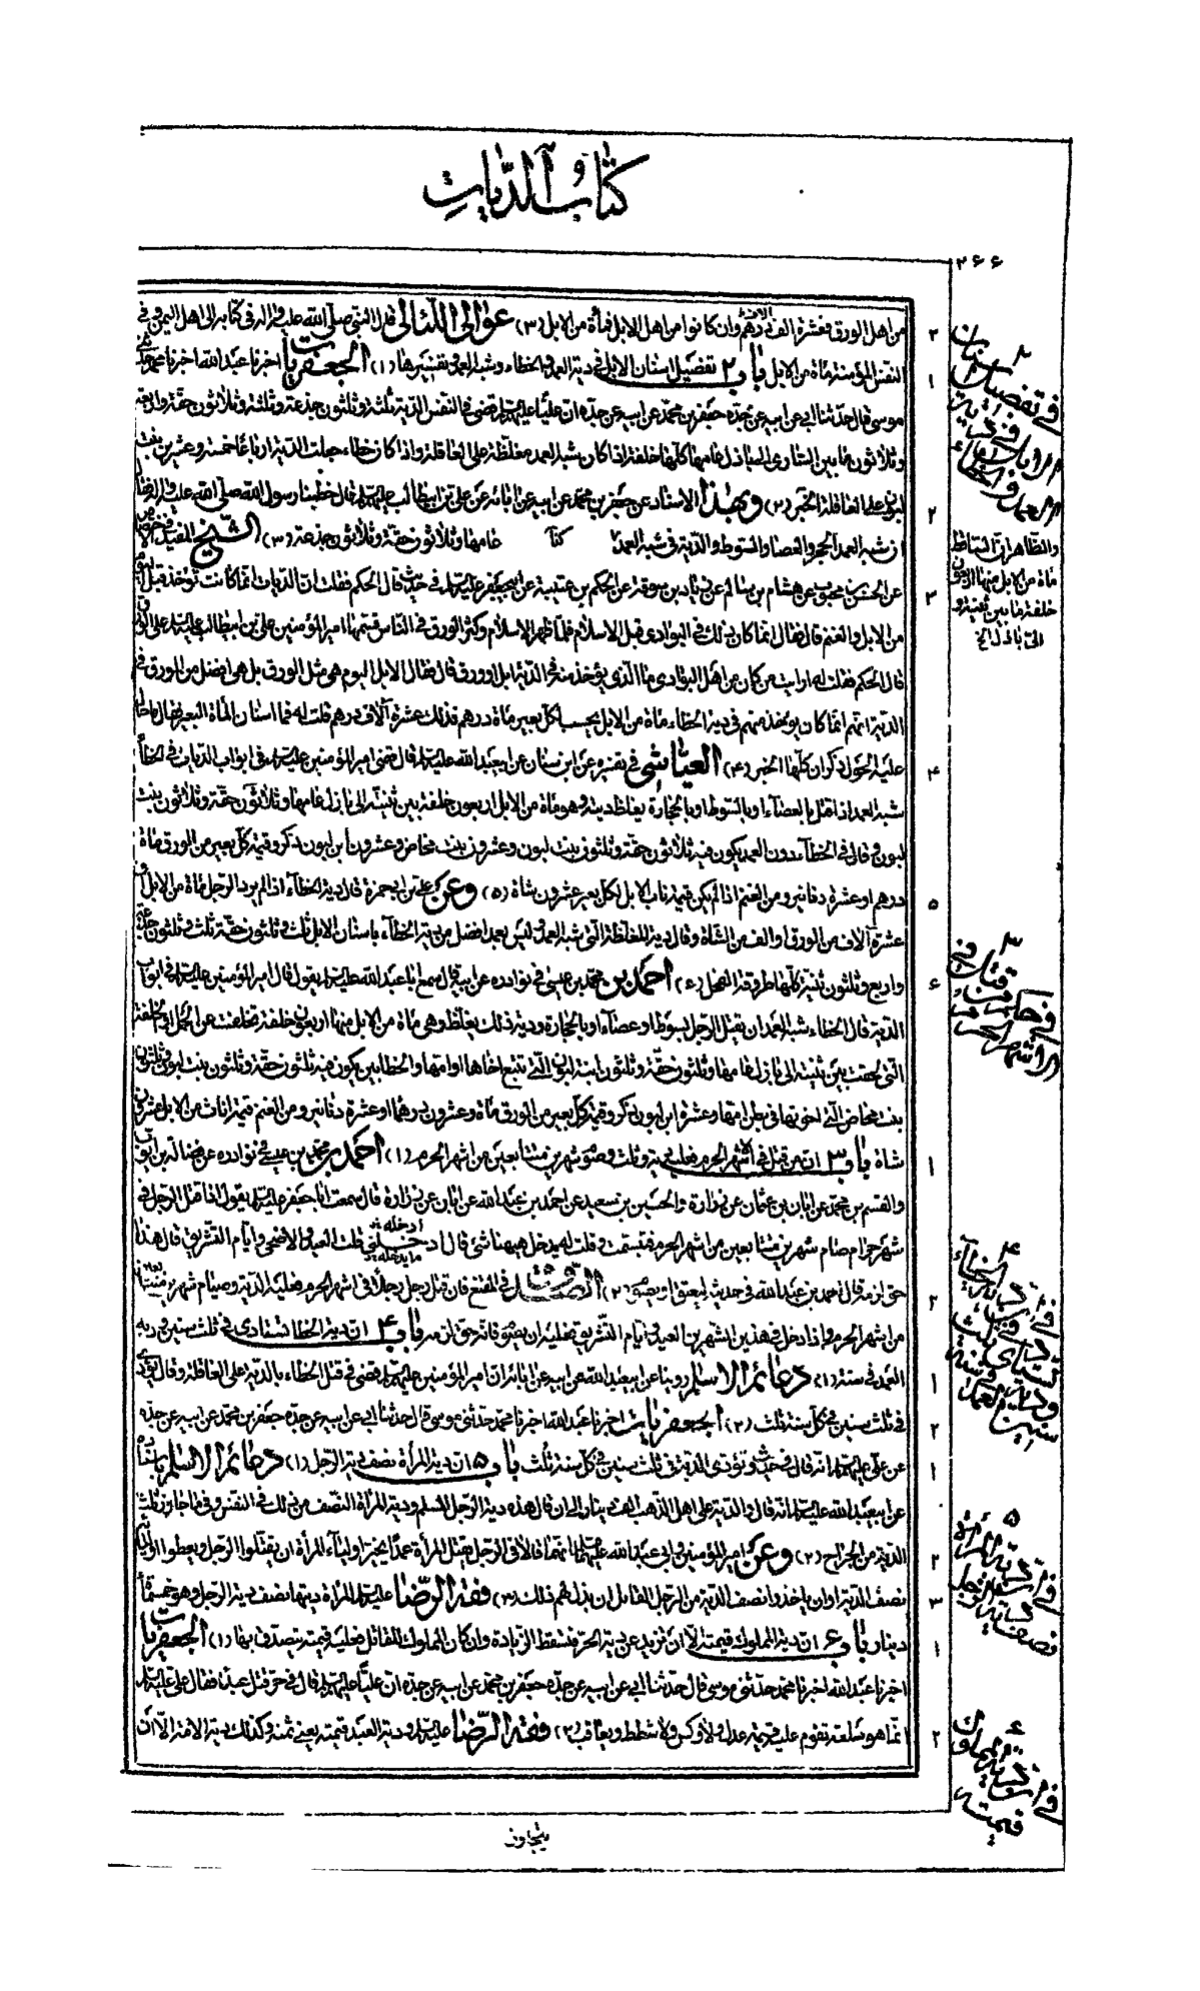 كتاب الديات
٢٦٦
من اهل الورق فعشرة الف درهم وان كانوا من اهل الابل فمأة من الابل (٣) عوالي اللئالي قال النبي صلى الله عليه واله في كتابه الى اهل اليمن وفي
النفس المؤمنة مأة من الابل باب ٢ تفصيل اسنان الابل في دية العمد والخطاء وشبه العمد وتفسيرها (١) الجعفريات اخبرنا عبد الله اخبرنا محمد حدثني
موسى قال حدثنا ابي عن ابيه عن جده جعفر بن محمد عن ابيه عن جده ان عليا عليه السلام قضى في النفس الدية ثلثة وثلثون جذعة وثلثة وثلاثون حقة واربعة
وثلاثون ما بين الثنية الى بازل عامها كلها خلفة اذا كان شبه العمد مغلظة على العاقلة واذا كان خطاء جعلت الدية ارباعا خمسة وعشرين بنت
لبون على العاقلة الخبر (٢) وبهذا الاسناد عن جعفر بن محمد عن ابيه عن ابائه عن علي بن ابيطالب عليه السلام قال خطبنا رسول الله صلى الله عليه واله فقال
ان شبه العمد الحجر والعصا والسوط والدية في شبه العمد كذا عامها وثلاثون حقة وثلاثون جذعة (٣) الشيخ المفيد في الاختصاص
عن الحسن بن محبوب عن هشام بن سالم عن زياد بن سوقة عن الحكم بن عتيبة عن ابيجعفر عليه السلام في حديث قال الحكم فقلت ان الديات انما كانت تؤخذ قبل اليوم
من الابل والغنم قال فقال انما كان ذلك في البوادي قبل الاسلام فلما ظهر الاسلام وكثر الورق في الناس قسمها امير المؤمنين علي بن ابيطالب عليه السلام على الورق
قال الحكم فقلت له ارايت من كان من اهل البوادي ما الذي يؤخذ منه في الدية ابل او ورق قال فقال الابل اليوم هي مثل الورق بل هي افضل من الورق في
الدية انهم انما كان يؤخذ منهم في دية الخطاء مأة من الابل يحسب لكل بعير مأة درهم فذلك عشرة آلاف درهم قلت له فما اسنان المأة البعير فقال ما حال
عليه الحول ذكران كلها الخبر (٤) العياشي في تفسيره عن ابن سنان عن ابيعبد الله عليه السلام قال قضى امير المؤمنين عليه السلام في ابواب الديات في الخطأ
شبه العمد اذا قتل بالعصاء او بالسوط او بالحجارة يغلظ ديته وهو مأة من الابل اربعون خلفة بين ثنية الى بازل عامها وثلاثون حقة وثلاثون بنت
لبون وقال في الخطاء دون العمد يكون فيه ثلاثون حقة وثلثون بنت لبون وعشرون بنت مخاض وعشرون ابن لبون ذكر وقيمة كل بعير من الورق مأة
درهم او عشرة دنانير ومن الغنم اذا لم يكن قيمة ناب الابل لكل بعير عشرون شاة (٥) وعن علي بن ابي حمزة قال دية الخطاء اذا لم يرد الرجل مأة من الابل او
عشرة آلاف من الورق او الف من الشاة وقال دية المغلظة التي شبه العمد وليس بعمد افضل من دية الخطاء باسنان الابل ثلث وثلثون حقة ثلث وثلثون جذعة
واربع وثلثون ثنية كلها طروقة الفحل (٦) احمد بن محمد بن عيسى في نوادره عن ابيه قال سمع ابا عبد الله عليه السلام يقول قال امير المؤمنين عليه السلام في ابواب
الدية قال الخطاء شبه العمد ان يقتل الرجل بسوط او عصاء او بالحجارة ودية ذلك يغلظ وهي مأة من الابل منها اربعون خلفة تخلفت عن الحمل او الخلفة
التي لحقت بين ثنية الى بازل عامها وثلثون حقة وثلثون ابنة لبون التي تتبع اخاها او امها والخطا بين يكون فيه ثلثون حقة وثلثون بنت لبون وعشرون
بنت مخاض التي اخوتها في بطن امها وعشرة ابن لبون ذكر وقيمة كل بعير من الورق مأة وعشرون درهما او عشرة دنانير ومن الغنم قيمة اناث من الابل عشرون
شاة باب ٣ ان من قتل في الاشهر الحرم فعليه دية وثلث وصوم شهرين متتابعين من اشهر الحرم (١) احمد بن محمد بن عيسى في نوادره عن فضالة بن ايوب
والقسم بن محمد عن ابان بن عثمان عن زرارة والحسين بن سعيد عن احمد بن عبد الله عن ابان عن زرارة قال سمعت ابا جعفر عليه السلام يقول اذا قتل الرجل في
شهر حرام صام شهرين متتابعين من اشهر الحرم فتبسمت وقلت له يدخل ههنا شئ قال ادخله قلت العيد والاضحى وايام التشريق قال هذا
حق لزمه قال احمد بن عبد الله في حديثه ليعتق او يصوم (٢) الصدوق في المقنع فان قتل رجل رجلا في اشهر الحرم فعليه الدية وصيام شهرين متتابعين
من اشهر الحرم واذا دخل في هذين الشهرين العيد وايام التشريق فعليه ان يصوم فانه حق لزمه باب ٤ ان دية الخطا تستأدى في ثلث سنين ودية
العمد في سنة (١) دعائم الاسلام روينا عن ابيعبد الله عن ابيه عن ابائه ان امير المؤمنين عليه السلام قضى في قتل الخطاء بالدية على العاقلة وقال يؤدى
في ثلث سنين في كل سنة ثلث (٢) الجعفريات اخبرنا عبد الله اخبرنا محمد حدثني موسى قال حدثنا ابي عن ابيه عن جده جعفر بن محمد عن ابيه عن جده
عن علي عليه السلام انه قال في حديث وتؤدى الدية في ثلث سنين في كل سنة ثلث باب ٥ ان دية المرأة نصف دية الرجل (١) دعائم الاسلام روينا
عن ابيعبد الله عليه السلام انه قال والدية على اهل الذهب الف دينار الى ان قال هذه دية الرجل المسلم ودية المرأة النصف من ذلك في النفس وفي ما جاوز ثلث
الدية من الجراح (٢) وعن امير المؤمنين وابي عبد الله عليهما السلام انهما قالا في الرجل يقتل المرأة عمدا يخير اولياء المرأة ان يقتلوا الرجل ويعطوا اولياءه
نصف الدية او ان ياخذوا نصف الدية من الرجل القاتل ان بذل لهم ذلك (٣) فقه الرضا عليه السلام المرأة ديتها نصف دية الرجل وهو خمسمأة
دينار باب ٦ ان دية المملوك قيمته الا ان تزيد عن دية الحر فتسقط الزيادة وان كان المملوك للقاتل فعليه قيمته يتصدق بها (١) الجعفريات
اخبرنا عبد الله اخبرنا محمد حدثني موسى قال حدثنا ابي عن ابيه عن جده جعفر بن محمد عن ابيه عن جده ان عليا عليه السلام قال في حر قتل عبدا فقال علي عليه السلام
انما هو سلعة تقوم عليه قيمة عدل ولا وكس ولا شطط ويعاقب (٢) فقه الرضا عليه السلام ودية العبد قيمته يعني ثمنه وكذلك دية الامة الا ان
٢ في تفصيل اسنان الابل في دية العمد والخطاء
والظاهر ان الساقط
مأة من الابل منها اربعون
خلفة ما بين ثنية و
الى بازل الخ
٣ في حكم من قتل في الاشهر الحرم
٤ في ان دية الخطاء تستأدى في ثلث سنين ودية العمد في سنة
٥ في ان دية المرأة نصف دية الرجل
٦ في ان دية المملوك قيمته
يتجاوز